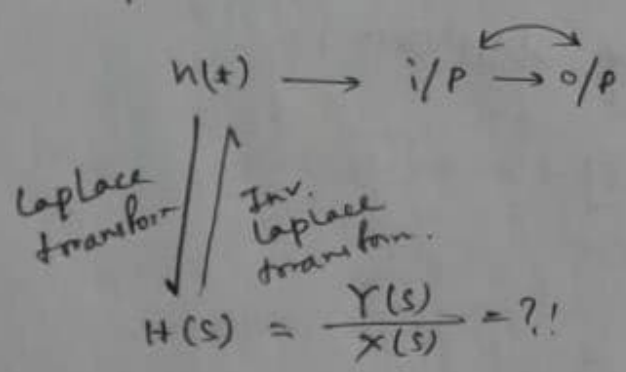 h(t) → i/p → o/p
Laplace
transform
Inv.
Laplace
transform.
H(s) = Y(s)/X(s) = ?!